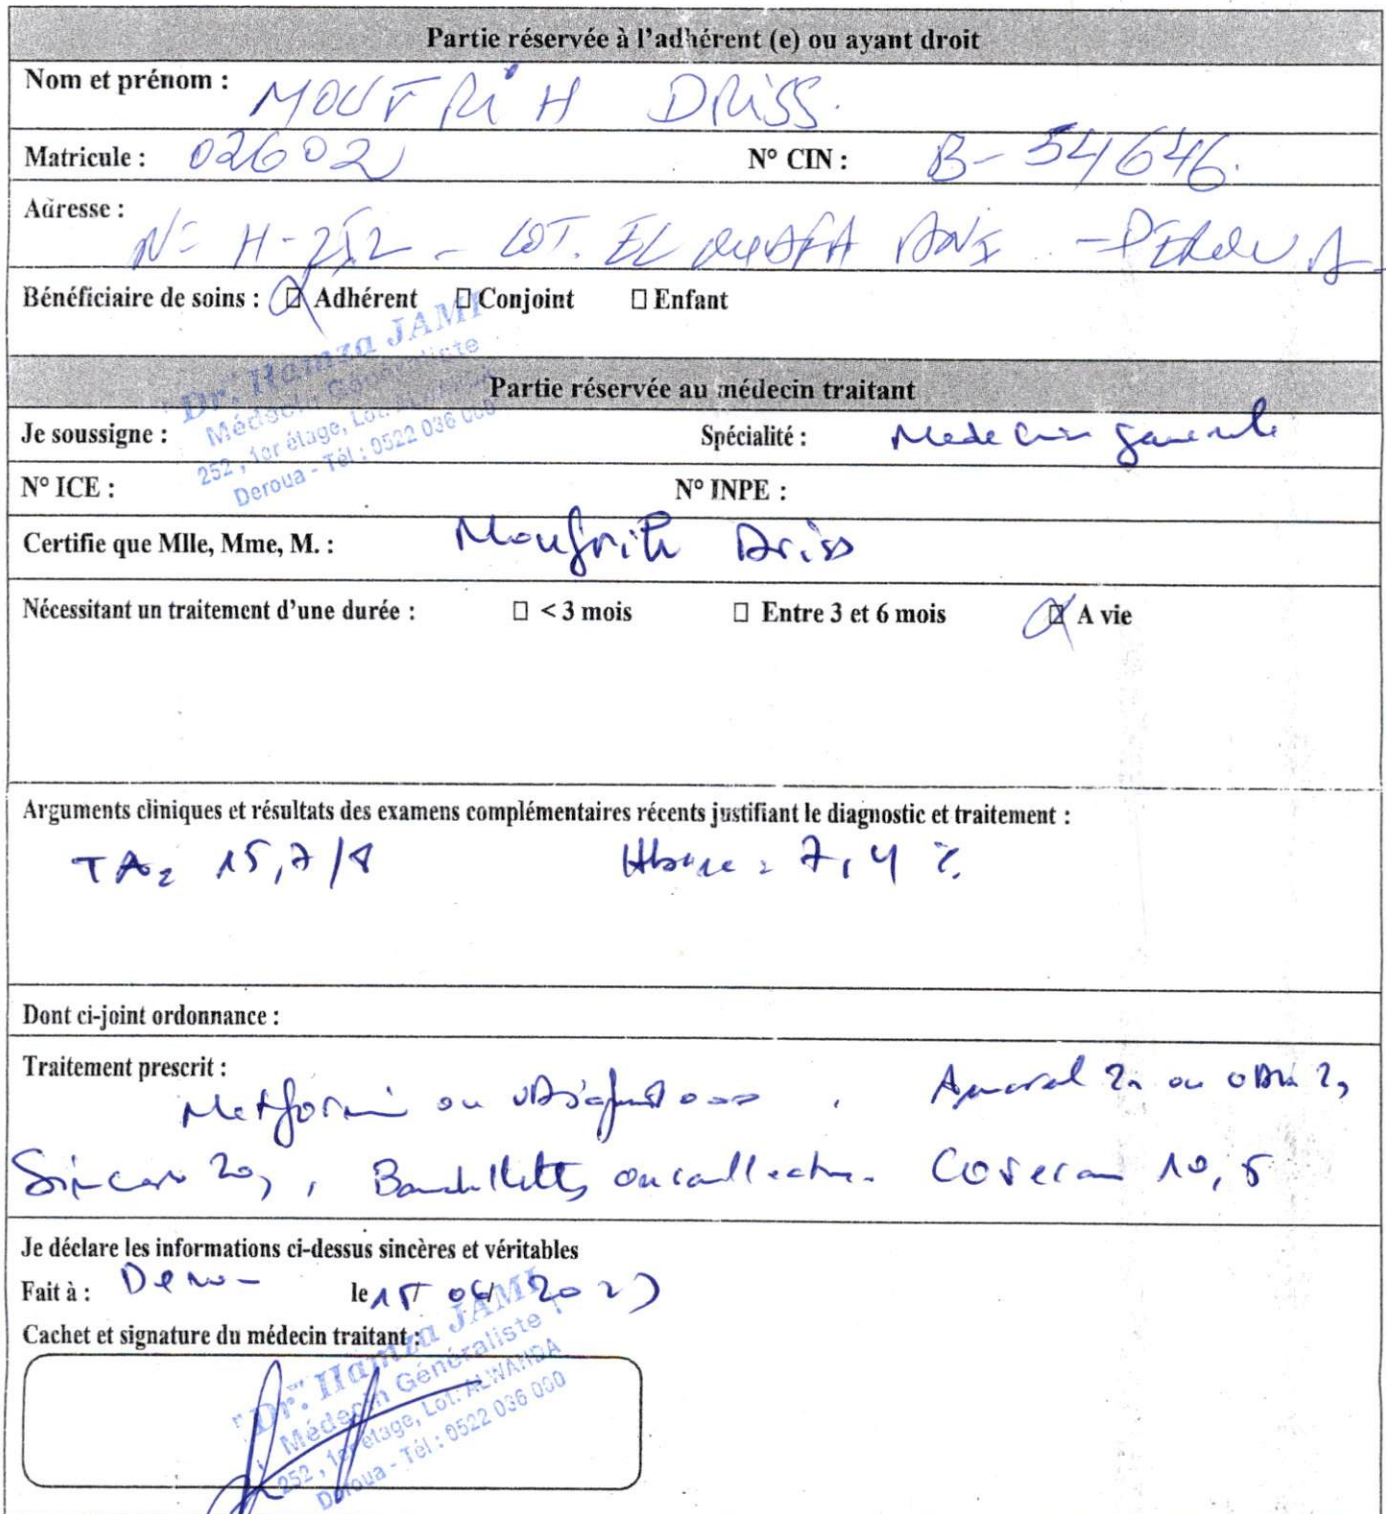 Partie réservée à l'adhérent (e) ou ayant droit
Nom et prénom : MOUFRiH DRiSS.
Matricule : 02602 N° CIN : B- 54646.
Adresse : N= H-252 - LOT. EL
Bénéficiaire de soins : Adhérent Conjoint Enfant
Dr. Hamza JAMI
Médecin Généraliste
252, 1er étage, Lot. ALWAHDA
Deroua - Tél : 0522 036 000
Partie réservée au médecin traitant
Je soussigne : Spécialité : Medecin generale
N° ICE : N° INPE :
Certifie que Mlle, Mme, M. : Moufrih Driss
Nécessitant un traitement d'une durée : < 3 mois Entre 3 et 6 mois A vie
Arguments cliniques et résultats des examens complémentaires récents justifiant le diagnostic et traitement :
TA= 15,7/8 = 7,4 %
Dont ci-joint ordonnance :
Traitement prescrit :
Metformi ou , Amarel 2 ou
20, , Bandelettes Coveram 10, 5
Je déclare les informations ci-dessus sincères et véritables
Fait à : le 15 04 2023
Cachet et signature du médecin traitant :
Dr. Hamza JAMI
Médecin Généraliste
252, 1er étage, Lot. ALWAHDA
Deroua - Tél : 0522 036 000